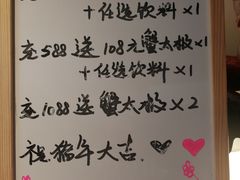 +任选饮料×1
充588送108元蟹太极×1
+任选饮料×1
充1088送蟹太极×2
祝猪年大吉.